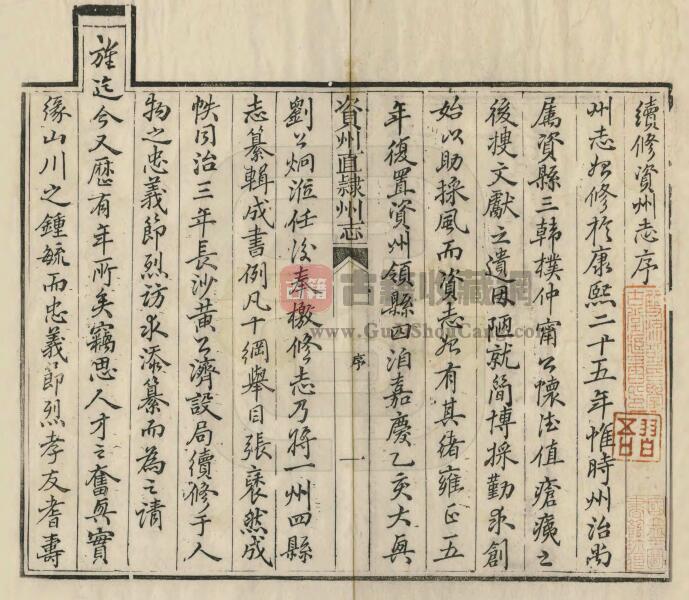 續修資州志序
州志始修於康熙二十五年惟時州治尚
属資縣三韓樸仲甯公懷德值瘡痍之
後搜文獻之遺因陋就簡博採勤求創
始以助採風而資志始有其緒雍正五
年復置資州領縣四洎嘉慶乙亥大興
資州直隸州志
序
一
劉公炯涖任後奉檄修志乃将一州四縣
志纂輯成書例凡十綱舉目張裒然成
帙同治三年長沙黄公濟設局續修于人
物之忠義節烈訪求添纂而為之請
旌迄今又歷有年所矣竊思人才之奮興實
緣山川之鍾毓而忠義節烈孝友耆壽
古籍收藏网
www.GuJiShouCang.com
古籍